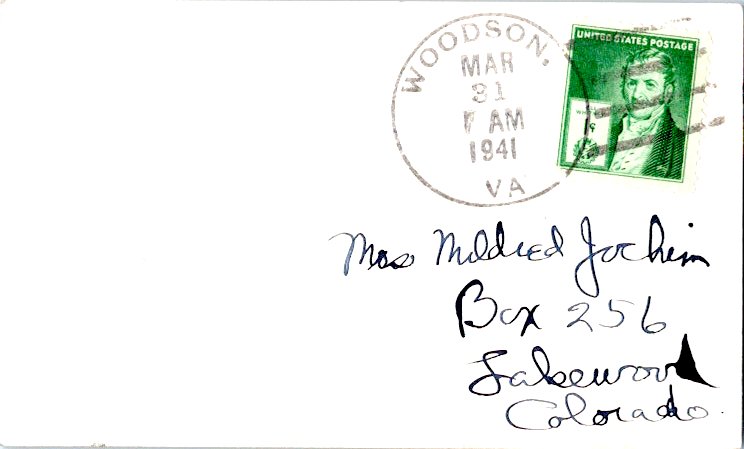 WOODSON,
MAR
31
7 AM
1941
VA
UNITED STATES POSTAGE
1¢
Miss Mildred Jochim
Box 256
Lakewood
Colorado.